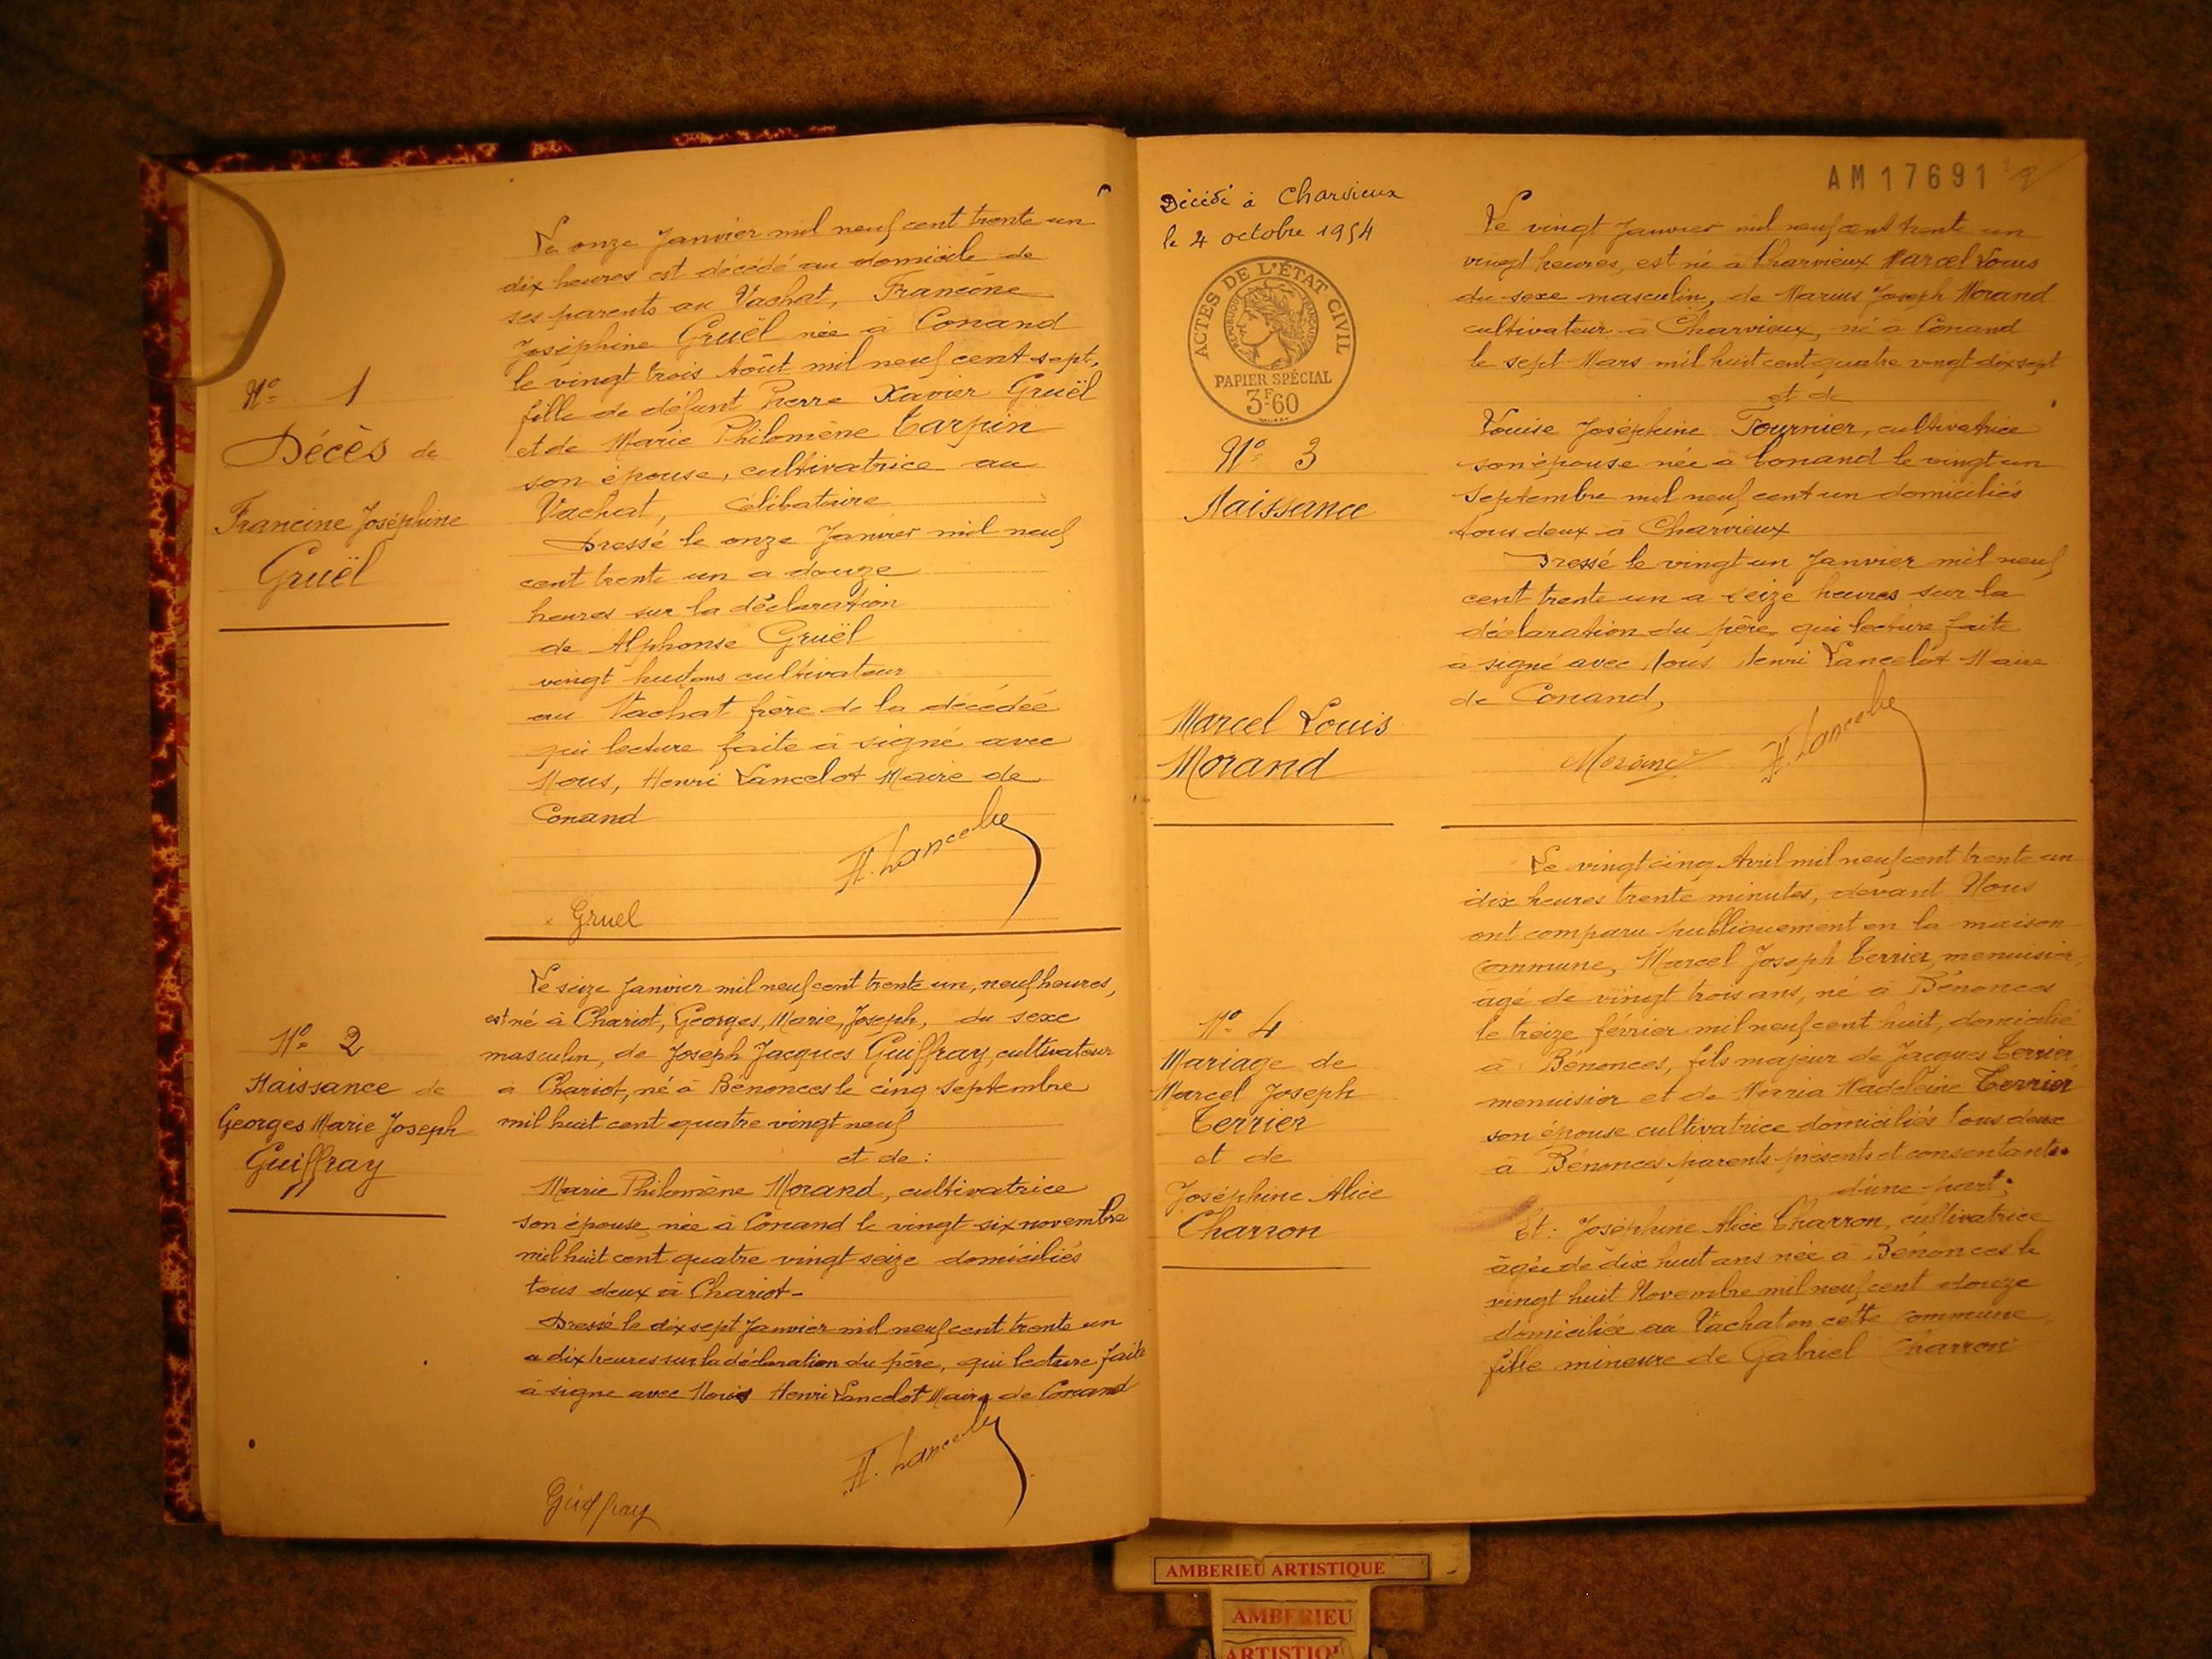 Nº 1
Décès de
Francine Joséphine
Gruël
Le onze Janvier mil neuf cent trente un
dix heures est décédé au domicile de
ses parents au Vachat, Francine
Joséphine Gruël née à Conand
le vingt trois Août mil neuf cent sept,
fille de défunt Pierre Xavier Gruël
et de Marie Philomène Tarpin
son épouse, cultivatrice au
Vachat, célibataire
Dressé le onze Janvier mil neuf
cent trente un a douze
heures sur la déclaration
de Alphonse Gruël
vingt huit ans cultivateur
au Vachat frère de la décédée
qui lecture faite à signé avec
Nous, Henri Lancelot Maire de
Conand
H. Lancelot
Gruel
Nº 2
Naissance de
Georges Marie Joseph
Guiffray
Le seize Janvier mil neuf cent trente un, neuf heures,
est né à Chariot, Georges, Marie, Joseph, du sexe
masculin, de Joseph Jacques Guiffray, cultivateur
à Chariot, né à Bénonces le cinq septembre
mil huit cent quatre vingt neuf
et de :
Marie Philomène Morand, cultivatrice
son épouse, née à Conand le vingt six novembre
mil huit cent quatre vingt seize domiciliés
tous deux à Chariot-
Dressé le dix sept Janvier mil neuf cent trente un
a dix heures sur la déclaration du père, qui lecture faite
à signe avec Nous Henri Lancelot Maire de Conand
H. Lancelot
Guiffray
Décédé à Charvieux
le 4 octobre 1954
ACTES DE L'ÉTAT CIVIL
RÉPUBLIQUE FRANÇAISE
PAPIER SPÉCIAL
3F60
Nº 3
Naissance
Marcel Louis
Morand
AM17691
Le vingt Janvier mil neuf cent trente un
vingt heures, est né à Charvieux Marcel Louis
du sexe masculin, de Marius Joseph Morand
cultivateur à Charvieux, né à Conand
le sept Mars mil huit cent quatre vingt dix sept
et de
Louise Joséphine Tournier, cultivatrice
son épouse née à Conand le vingt un
Septembre mil neuf cent un domiciliés
tous deux à Charvieux
Dressé le vingt un Janvier mil neuf
cent trente un a seize heures sur la
déclaration du père, qui lecture faite
à signé avec Nous Henri Lancelot Maire
de Conand,
Morand H. Lancelot
Nº 4
Mariage de
Marcel Joseph
Terrier
et de
Joséphine Alice
Charron
Le vingt cinq Avril mil neuf cent trente un
dix heures trente minutes, devant Nous
ont comparu publiquement en la maison
commune, Marcel Joseph Terrier, menuisier,
âgé de vingt trois ans, né à Bénonces
le treize février mil neuf cent huit, domicilié
à Bénonces, fils majeur de Jacques Terrier
menuisier et de Maria Madeleine Terrier
son épouse cultivatrice domiciliés tous deux
à Bénonces parents présents et consentants.
d'une part ;
Et : Joséphine Alice Charron, cultivatrice
âgée de dix huit ans née à Bénonces le
vingt huit Novembre mil neuf cent douze
domiciliée au Vachat en cette commune,
fille mineure de Gabriel Charron
AMBERIEU ARTISTIQUE
AMBERIEU
ARTISTIQ